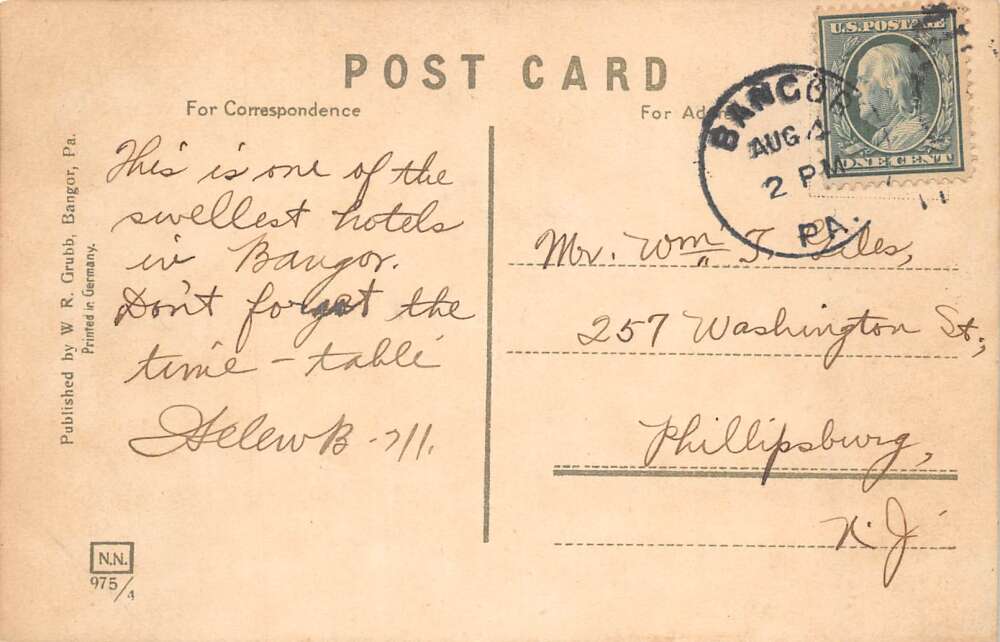 POST CARD
For Correspondence
This is one of the
swellest hotels
in Bangor.
Don't forget the
time - table
Helen B -
For Ad
U.S. POSTAGE
ONE CENT
BANGOR
AUG 4
2 PM
PA.
Mr. Wm T. Giles,
257 Washington St.,
Phillipsburg,
N. J.
Published by W. R. Grubb, Bangor, Pa.
Printed in Germany.
N.N.
975/4